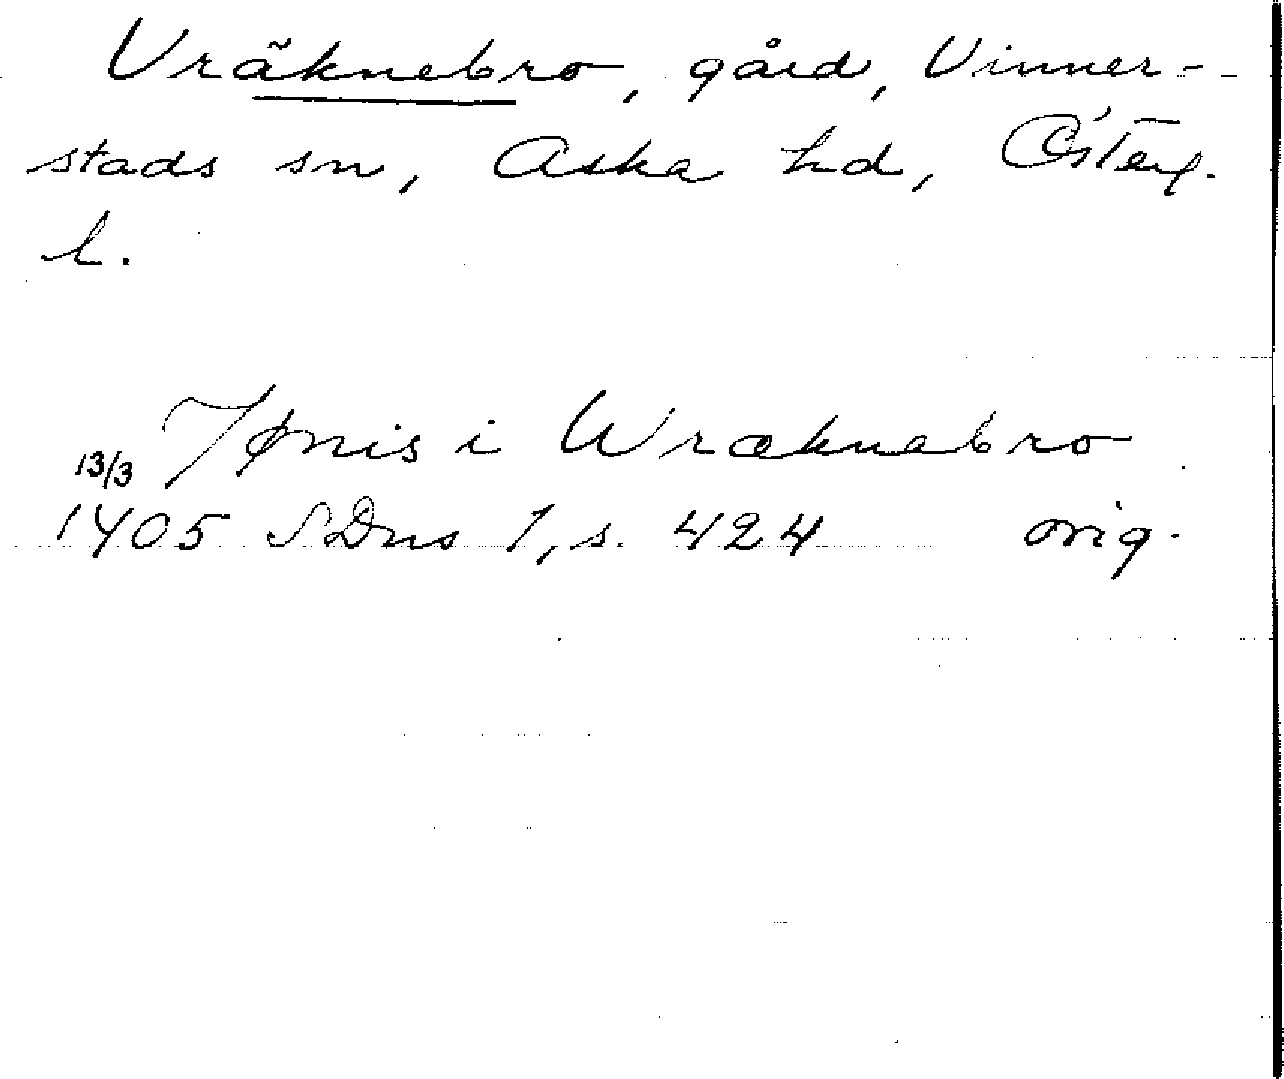 Vräknebro, gård, Vinner-
stads sn, Aska hd, Österg.
l.
Jønis i Wræknabro
13/3
1405 SDns 1, s. 424 orig.